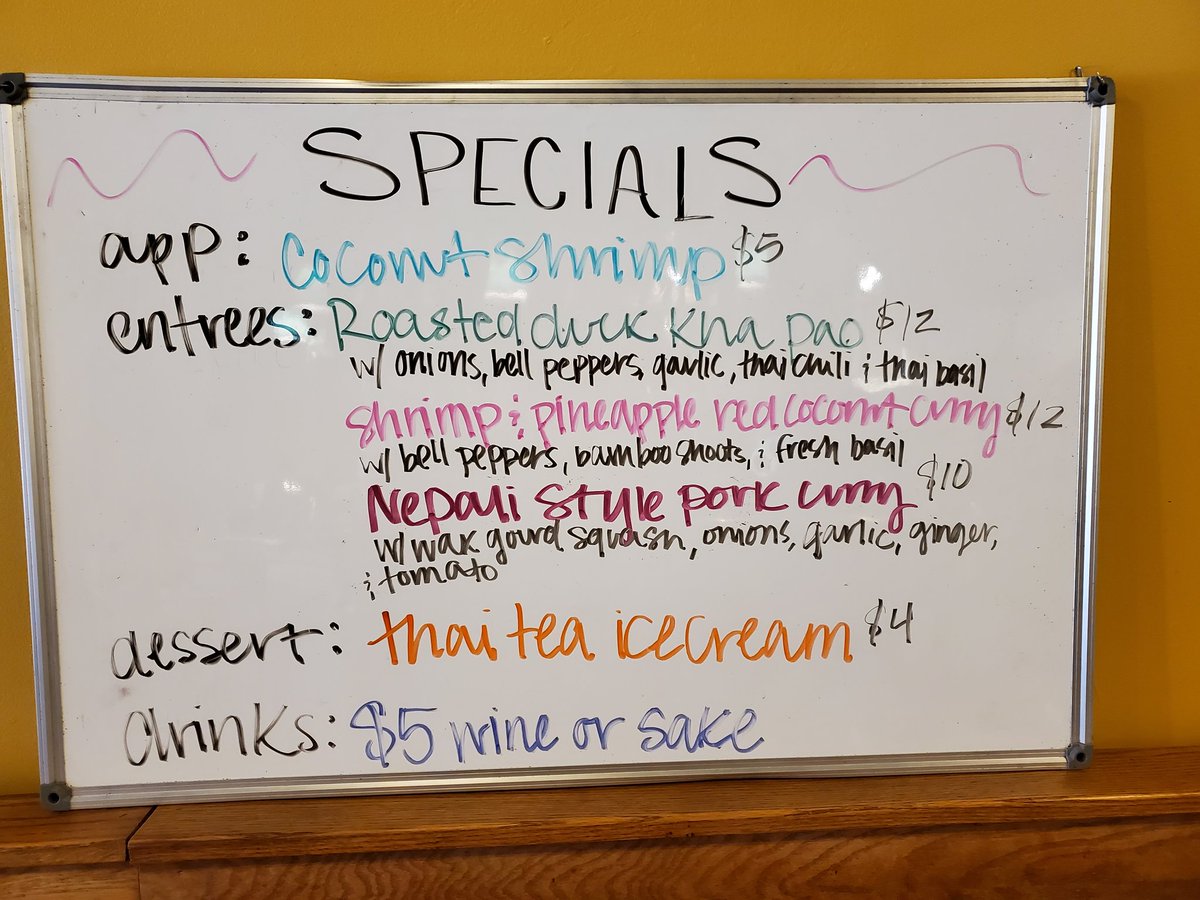 SPECIALS
app: coconut shrimp $5
entrees: Roasted duck Kha pao $12
w/ onions, bell peppers, garlic, thai chili & thai basil
shrimp & pineapple red coconut curry $12
w/ bell peppers, bamboo shoots, & fresh basil
Nepali style pork curry $10
w/ wax gourd squash, onions, garlic, ginger,
& tomato
dessert: thai tea icecream $4
drinks: $5 wine or sake